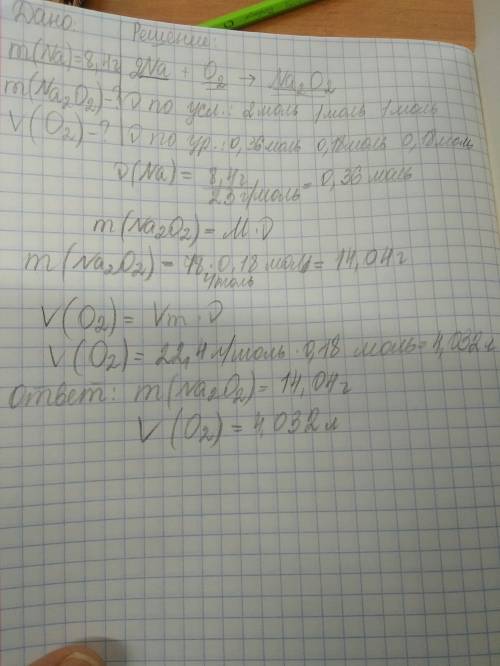 Дано: Решение:
m(Na)=8,4г 2Na + O₂ → Na₂O₂
m(Na₂O₂)-? ν по усл.: 2 моль 1 моль 1 моль
V(O₂)-? ν по ур.: 0,36 моль 0,18 моль 0,18 моль
ν(Na) = 8,4г / 23 г/моль = 0,36 моль
m(Na₂O₂) = M·ν
m(Na₂O₂) = 78 г/моль · 0,18 моль = 14,04 г
V(O₂) = Vm · ν
V(O₂) = 22,4 л/моль · 0,18 моль = 4,032 л
Ответ: m(Na₂O₂) = 14,04 г
V(O₂) = 4,032 л